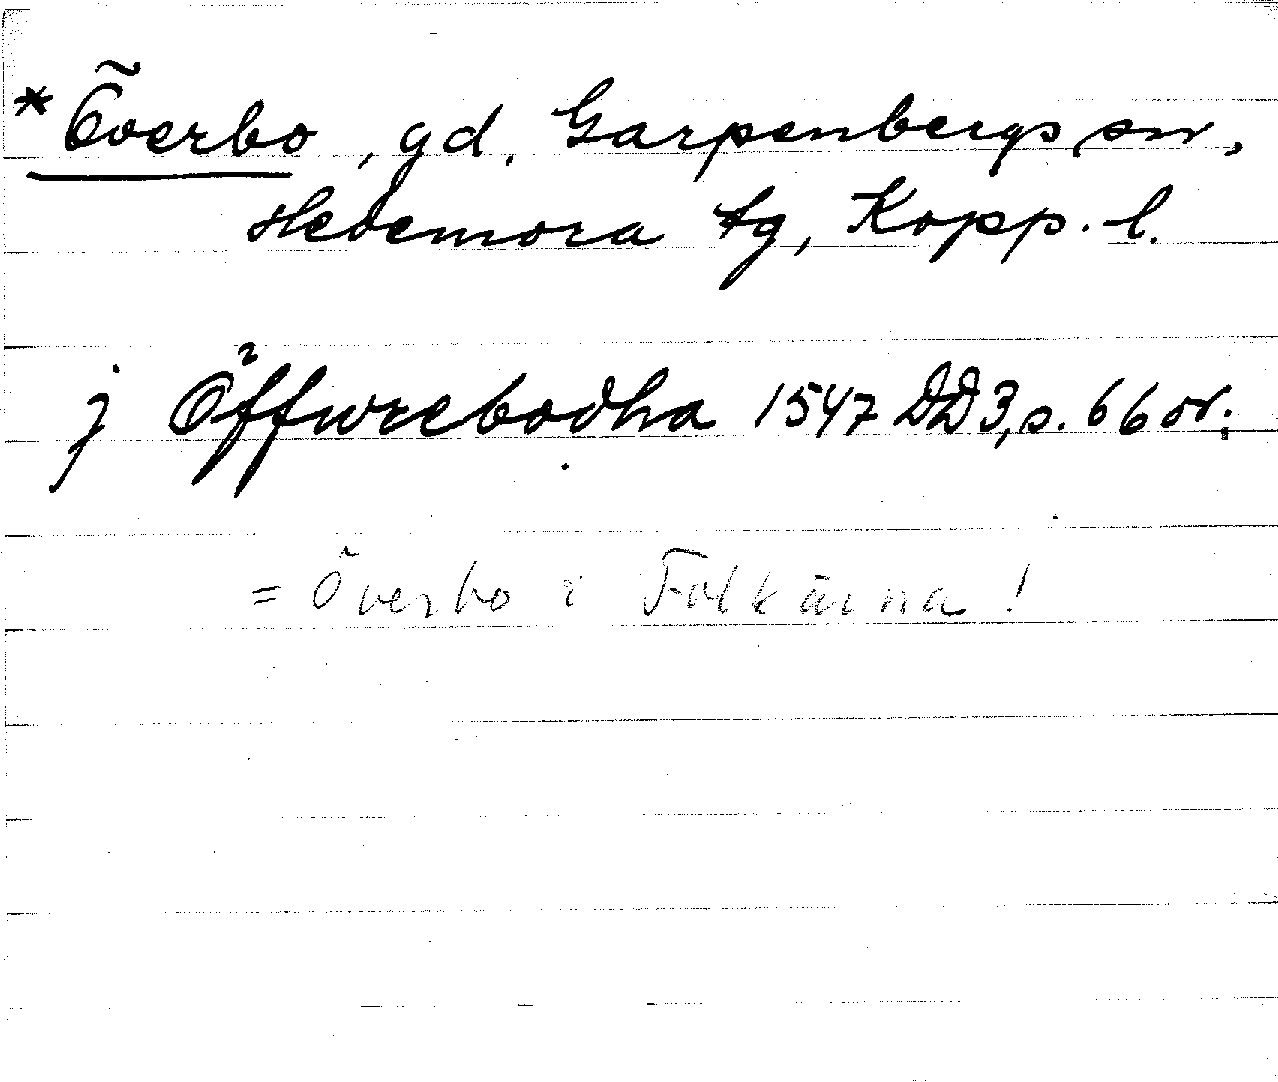 *Överbo, gd. Garpenbergs sn,
Hedemora tg, Kopp. l.
j Öffwrebodha 1547 DD3, s. 66 or.;
= Överbo i Folkärna!